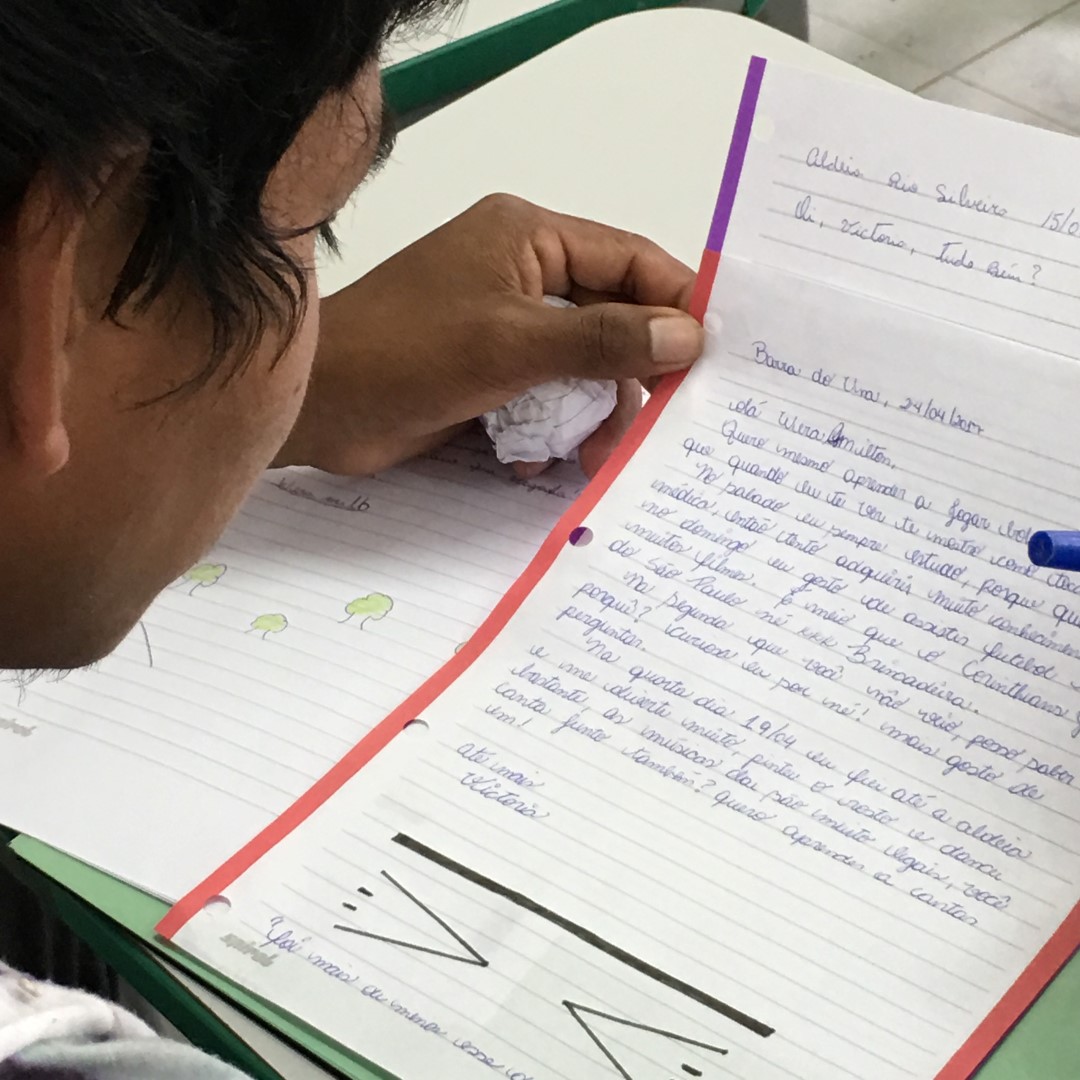 Aldeia Rio Silveira 15/0
Oi, Victoria, tudo bem?
Barra do Una, 24/04/2017
Olá Wera Amilton,
Quero mesmo aprender a jogar
que quando eu te ver te mostro como
No sabado eu sempre estudo, porque que
médica, então tento adquirir muito conhecimen
no domingo eu gosto de assistir futebol
muitos filmes. É meio que o Corinthians
do São Paulo né kkk Brincadeira.
Na segunda que você não veio, posso saber
porquê? Curiosa eu pou né! mais gosto de
perguntar.
Na quarta dia 19/04 eu fui até a aldeia
e me diverti muito, pintei o rosto e dancei
bastante, as músicas daí são muito legais, você
canta junto também? quero aprender a cantar
um!
até mais
Victoria
"foi mais ou menos esse
spiral
spiral